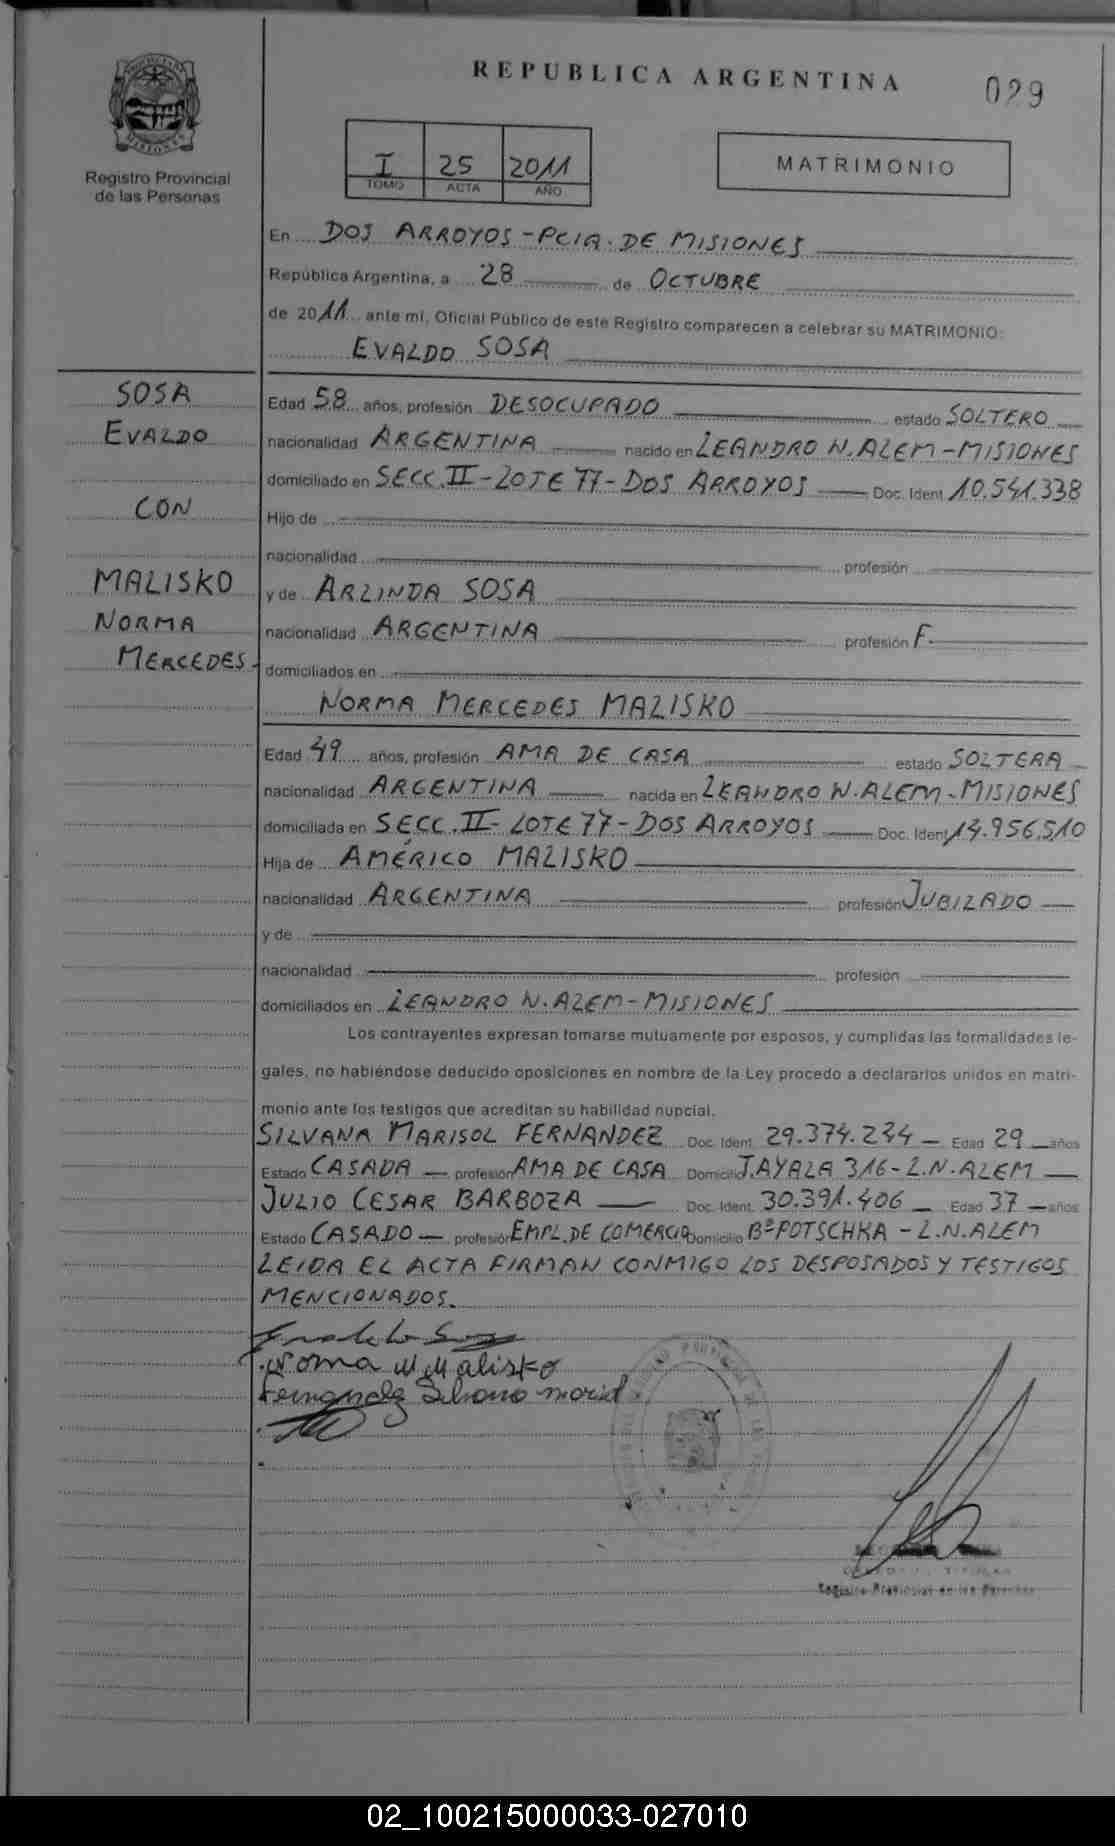 REPUBLICA ARGENTINA
029
Registro Provincial
de las Personas
I 25 2011
TOMO ACTA AÑO
MATRIMONIO
En DOS ARROYOS - PCIA. DE MISIONES
República Argentina, a 28 de OCTUBRE
de 2011 ante mí, Oficial Público de este Registro comparecen a celebrar su MATRIMONIO:
EVALDO SOSA
SOSA
EVALDO
CON
MALISKO
NORMA
MERCEDES-
Edad 58 años, profesión DESOCUPADO estado SOLTERO
nacionalidad ARGENTINA nacido en LEANDRO N. ALEM - MISIONES
domiciliado en SECC. II - LOTE 77 - DOS ARROYOS Doc. Ident. 10.541.338
Hijo de
nacionalidad profesión
y de ARLINDA SOSA
nacionalidad ARGENTINA profesión F.
domiciliados en
NORMA MERCEDES MALISKO
Edad 49 años, profesión AMA DE CASA estado SOLTERA
nacionalidad ARGENTINA nacida en LEANDRO N. ALEM - MISIONES
domiciliada en SECC. II - LOTE 77 - DOS ARROYOS Doc. Ident. 14.956.510
Hija de AMÉRICO MALISKO
nacionalidad ARGENTINA profesión JUBILADO
y de
nacionalidad profesión
domiciliados en LEANDRO N. ALEM - MISIONES
Los contrayentes expresan tomarse mutuamente por esposos, y cumplidas las formalidades le-
gales, no habiéndose deducido oposiciones en nombre de la Ley procedo a declararlos unidos en matri-
monio ante los testigos que acreditan su habilidad nupcial.
SILVANA MARISOL FERNANDEZ Doc. Ident. 29.374.234 Edad 29 años
Estado CASADA profesión AMA DE CASA Domicilio J. AYALA 316 - L.N. ALEM
JULIO CESAR BARBOZA Doc. Ident. 30.391.406 Edad 37 años
Estado CASADO profesión EMPL. DE COMERCIO Domicilio Bº POTSCHKA - L.N. ALEM
LEIDA EL ACTA FIRMAN CONMIGO LOS DESPOSADOS Y TESTIGOS
MENCIONADOS.
Norma M Malisko
Fernandez Silvana
Registro Provincial de las Personas
02_100215000033-027010